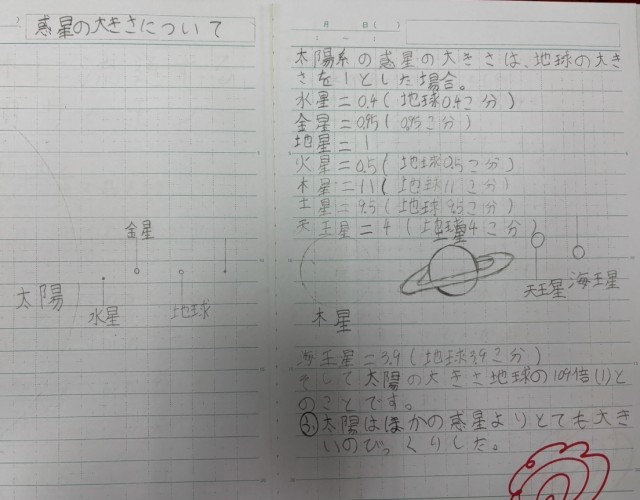 惑星の大きさについて
金星
太陽
水星
地球
月 日( )
: ~ :
太陽系の惑星の大きさは、地球の大き
さを1とした場合。
水星=0.4(地球0.4こ分)
金星=0.95(0.95こ分)
地星=1
火星=0.5(地球0.5こ分)
木星=11(地球11こ分)
土星=9.5(地球9.5こ分)
天王星=4(地球4こ分)
土星
天王星
海王星
木星
海王星=3.9(地球3.9こ分)
そして太陽の大きさ地球の109倍(1)と
のことです。
太陽はほかの惑星よりとても大き
いのびっくりした。